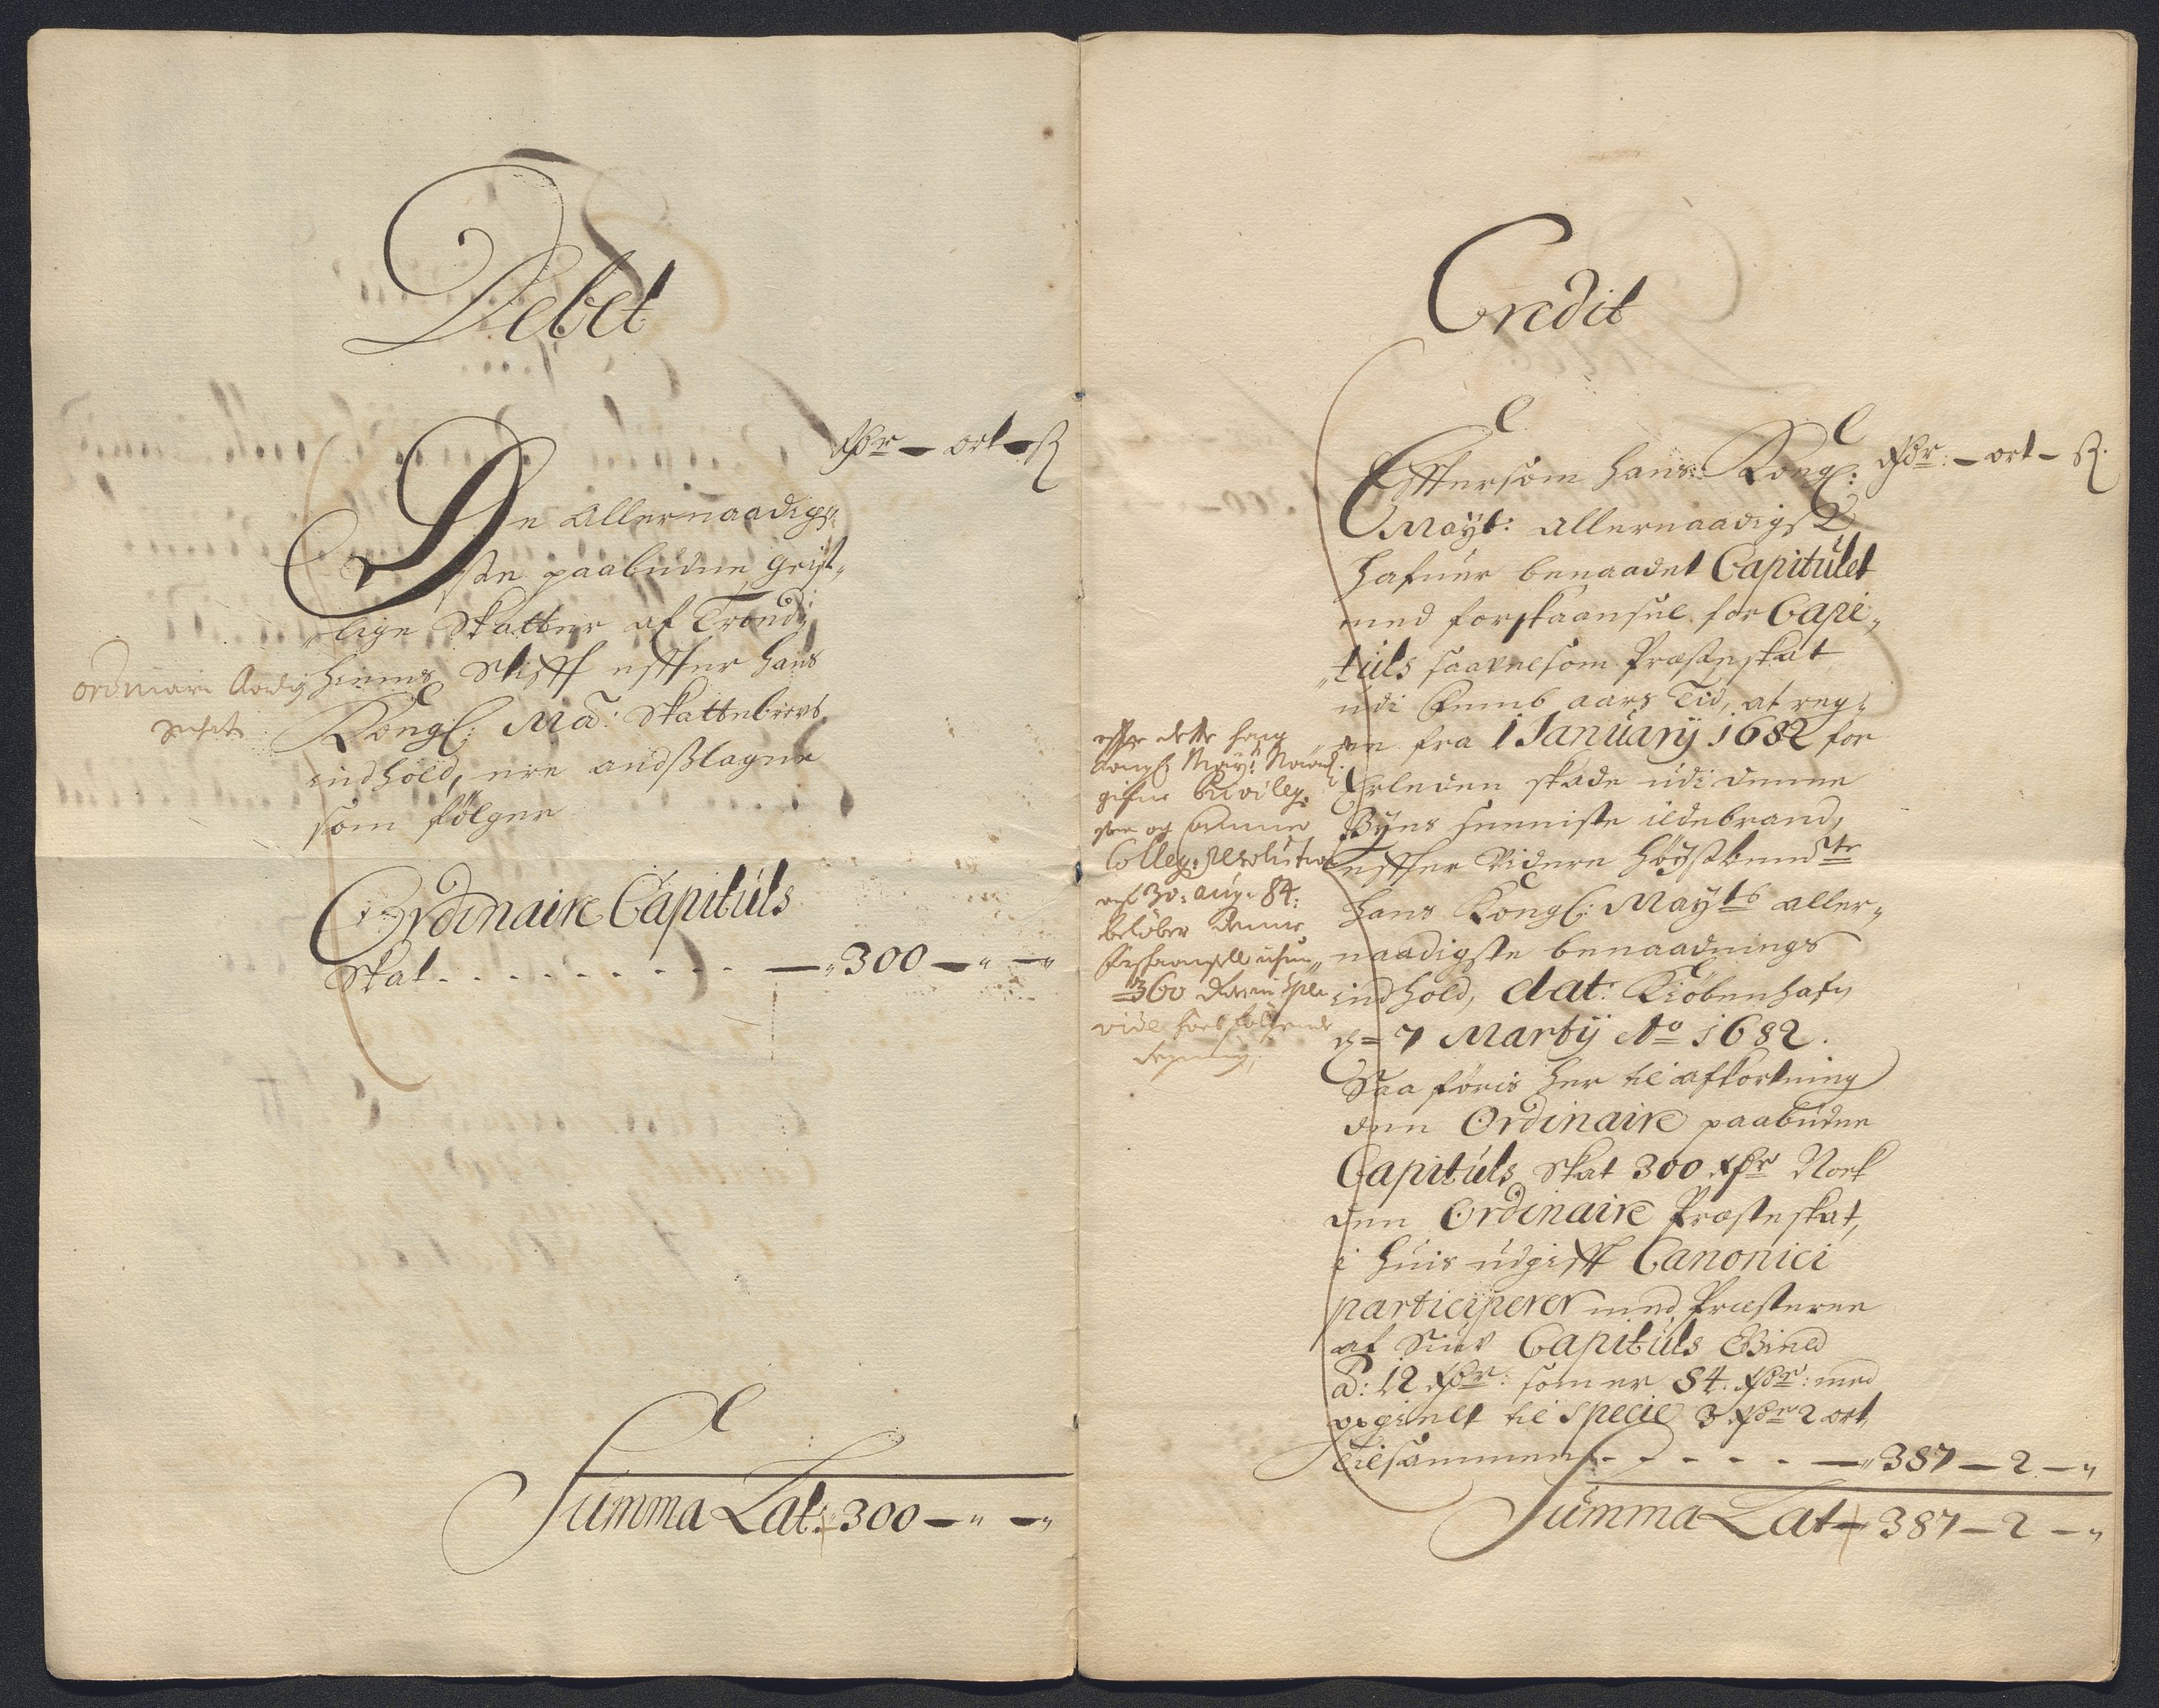 Debet
Rdr — ort — ß
De Allernaadigs„
ste paabudne geist„
„lige Skatter af Trond„
hiems Stifft effter hans
Kongl: Ma: Skattebrevs
indhold, ere andslagne
som følger
ordinari
Ordinaire Capituls
Skat - - - - - - - - — „300 — „ — „
Summa Lat: 300 — „ — „
Credit
Rdr: — ort — ß.
Efftersom hans Kongl:
Mayt: allernaadigst
hafuer benaadet Capitulet
med forskaansel for Capi„
„tuls saavelsom Præsteskat
udi Femb aars Tid, at reg„
„ne fra 1 January 1682 for
Erleden skade udi denne
Byes seeniste ildebrand,
effter Videre høystbemte
hans Kongl: Mayts aller„
naadigste benaadnings
indhold, dat: Kiøbenhafn
d= 7 Marty Ao 1682.
Saa føris her til afkortning
den Ordinaire paabudne
Capituls Skat 300 Rdr Nock
den Ordinaire Præsteskat,
i huis udgifft Canonici
participerer med Præsterne
af Siuv Capituls Gield
a: 12 Rdr: som er 84 Rdr: med
opgield til Specie 3 Rdr 2 ort
Tilsammen - - - - - — „387 — 2 — „
Summa Lat — 387 — 2 — „
effter dette hans
Kongl: Mayt:
gifne Privileg„
er og Cammer
Colleg: Resolution
af 30: aug: 84:
beløber denne
360